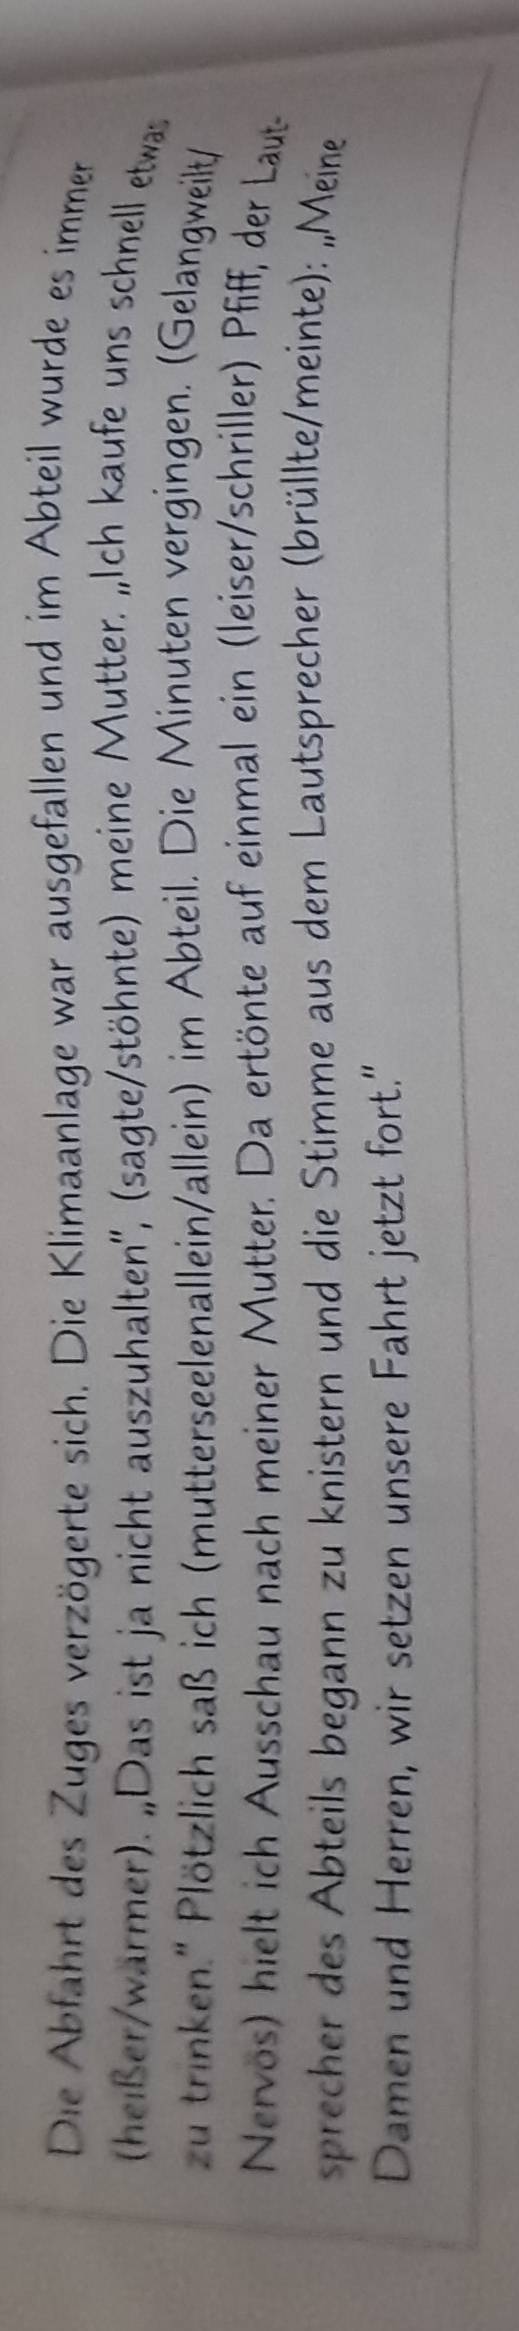 Die Abfahrt des Zuges verzögerte sich. Die Klimaanlage war ausgefallen und im Abteil wurde es immer
(heißer/wärmer). „Das ist ja nicht auszuhalten“, (sagte/stöhnte) meine Mutter. „Ich kaufe uns schnell etwas
zu trinken.“ Plötzlich saß ich (mutterseelenallein/allein) im Abteil. Die Minuten vergingen. (Gelangweilt/
Nervös) hielt ich Ausschau nach meiner Mutter. Da ertönte auf einmal ein (leiser/schriller) Pfiff, der Laut-
sprecher des Abteils begann zu knistern und die Stimme aus dem Lautsprecher (brüllte/meinte): „Meine
Damen und Herren, wir setzen unsere Fahrt jetzt fort.“